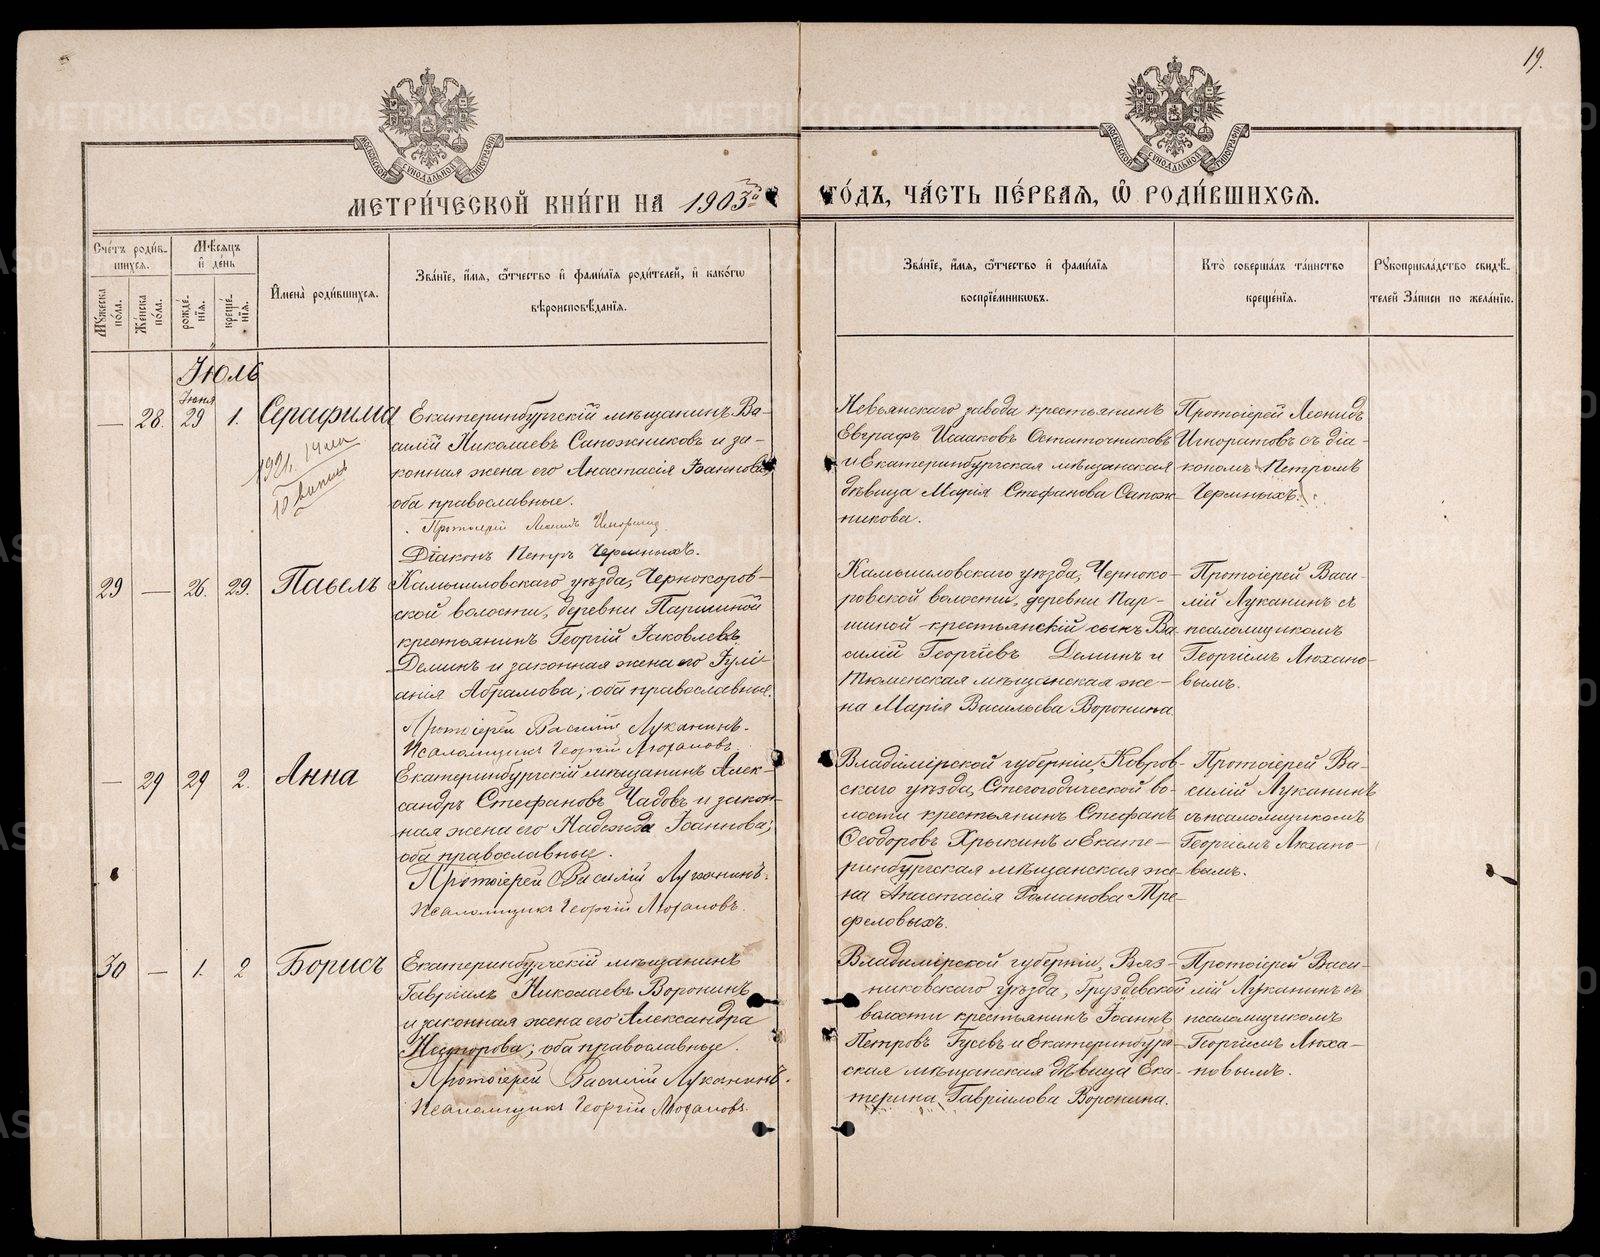 19.
МОСКОВСКОЙ СѴНОДАЛЬНОЙ ТИПОГРАФІИ
МОСКОВСКОЙ СѴНОДАЛЬНОЙ ТИПОГРАФІИ
МЕТРИ́ЧЕСКОЙ КНИ́ГИ НА 1903й ГО́ДЪ, ЧА́СТЬ ПЕ́РВАЯ, Ѽ РОДИ́ВШИХСЯ.
Сче́тъ роди́в-
шихся.
Му́жеска по́ла.
Же́нска по́ла.
Мѣ́сяцъ
и де́нь
рожде́-
нія.
креще́-
нія.
Имена̀ роди́вшихся.
Зва́ніе, и́мя, ѻ́тчество и фами́лія роди́телей, и како́гѡ
вѣроисповѣ́данія.
Зва́ніе, и́мя, ѻ́тчество и фами́лія
воспріе́мникѡвъ.
Кто̀ соверша́лъ та́инство
креще́нія.
Рꙋкоприкла́дство свидѣ́-
телей За́писи по жела́нію.
Іюль
— 28. Іюня 29 1. Серафима
1921. 14 мая
Екатеринбургскій мѣщанинъ Ва-
силій Николаевъ Сапожниковъ и за-
конная жена его Анастасія Іоаннова,
оба православные.
Протоіерей Леонидъ Игноратовъ
Діаконъ Петръ Черемныхъ.
Невьянскаго завода крестьянинъ
Евграфъ Исааковъ Остаточниковъ
и Екатеринбургская мѣщанская
дѣвица Марія Стефанова Сапож-
никова.
Протоіерей Леонидъ
Игноратовъ съ діа-
кономъ Петромъ
Черемныхъ.
29 — 26. 29. Павелъ
Камышловскаго уѣзда, Чернокоров-
ской волости, деревни Паршиной
крестьянинъ Георгій Іаковлевъ
Деминъ и законная жена его Іулі-
анія Абрамова; оба православные.
Протоіерей Василій Луканинъ.
Псаломщикъ Георгій Люхановъ.
Камышловскаго уѣзда, Черноко-
ровской волости, деревни Пар-
шиной крестьянскій сынъ Ва-
силій Георгіевъ Деминъ и
Тюменская мѣщанская же-
на Марія Васильева Воронина
Протоіерей Васи-
лій Луканинъ съ
псаломщикомъ
Георгіемъ Люхано-
вымъ.
— 29 29 2. Анна
Екатеринбургскій мѣщанинъ Алек-
сандръ Стефановъ Чадовъ и закон-
ная жена его Надежда Іоаннова;
оба православные.
Протоіерей Василій Луканинъ.
Псаломщикъ Георгій Люхановъ.
Владимірской губерніи, Ковров-
скаго уѣзда, во-
лости крестьянинъ Стефанъ
Ѳеодоровъ Хрыкинъ и Екате-
ринбургская мѣщанская же-
на Анастасія Романова Тре-
феловыхъ.
Протоіерей Ва-
силій Луканинъ
съ псаломщикомъ
Георгіемъ Люхано-
вымъ.
30 — 1. 2 Борисъ
Екатеринбургскій мѣщанинъ
Гавріилъ Николаевъ Воронинъ
и законная жена его Александра
Никторова; оба православные.
Протоіерей Василій Луканинъ.
Псаломщикъ Георгій Люхановъ.
Владимірской губерніи, Вяз-
никовскаго уѣзда, Груздевской
волости крестьянинъ Іоаннъ
Петровъ Гусевъ и Екатеринбург-
ская мѣщанская дѣвица Ека-
терина Гавріилова Воронина.
Протоіерей Васи-
лій Луканинъ съ
псаломщикомъ
Георгіемъ Люха-
новымъ.
METRIKI.GASO-URAL.RU